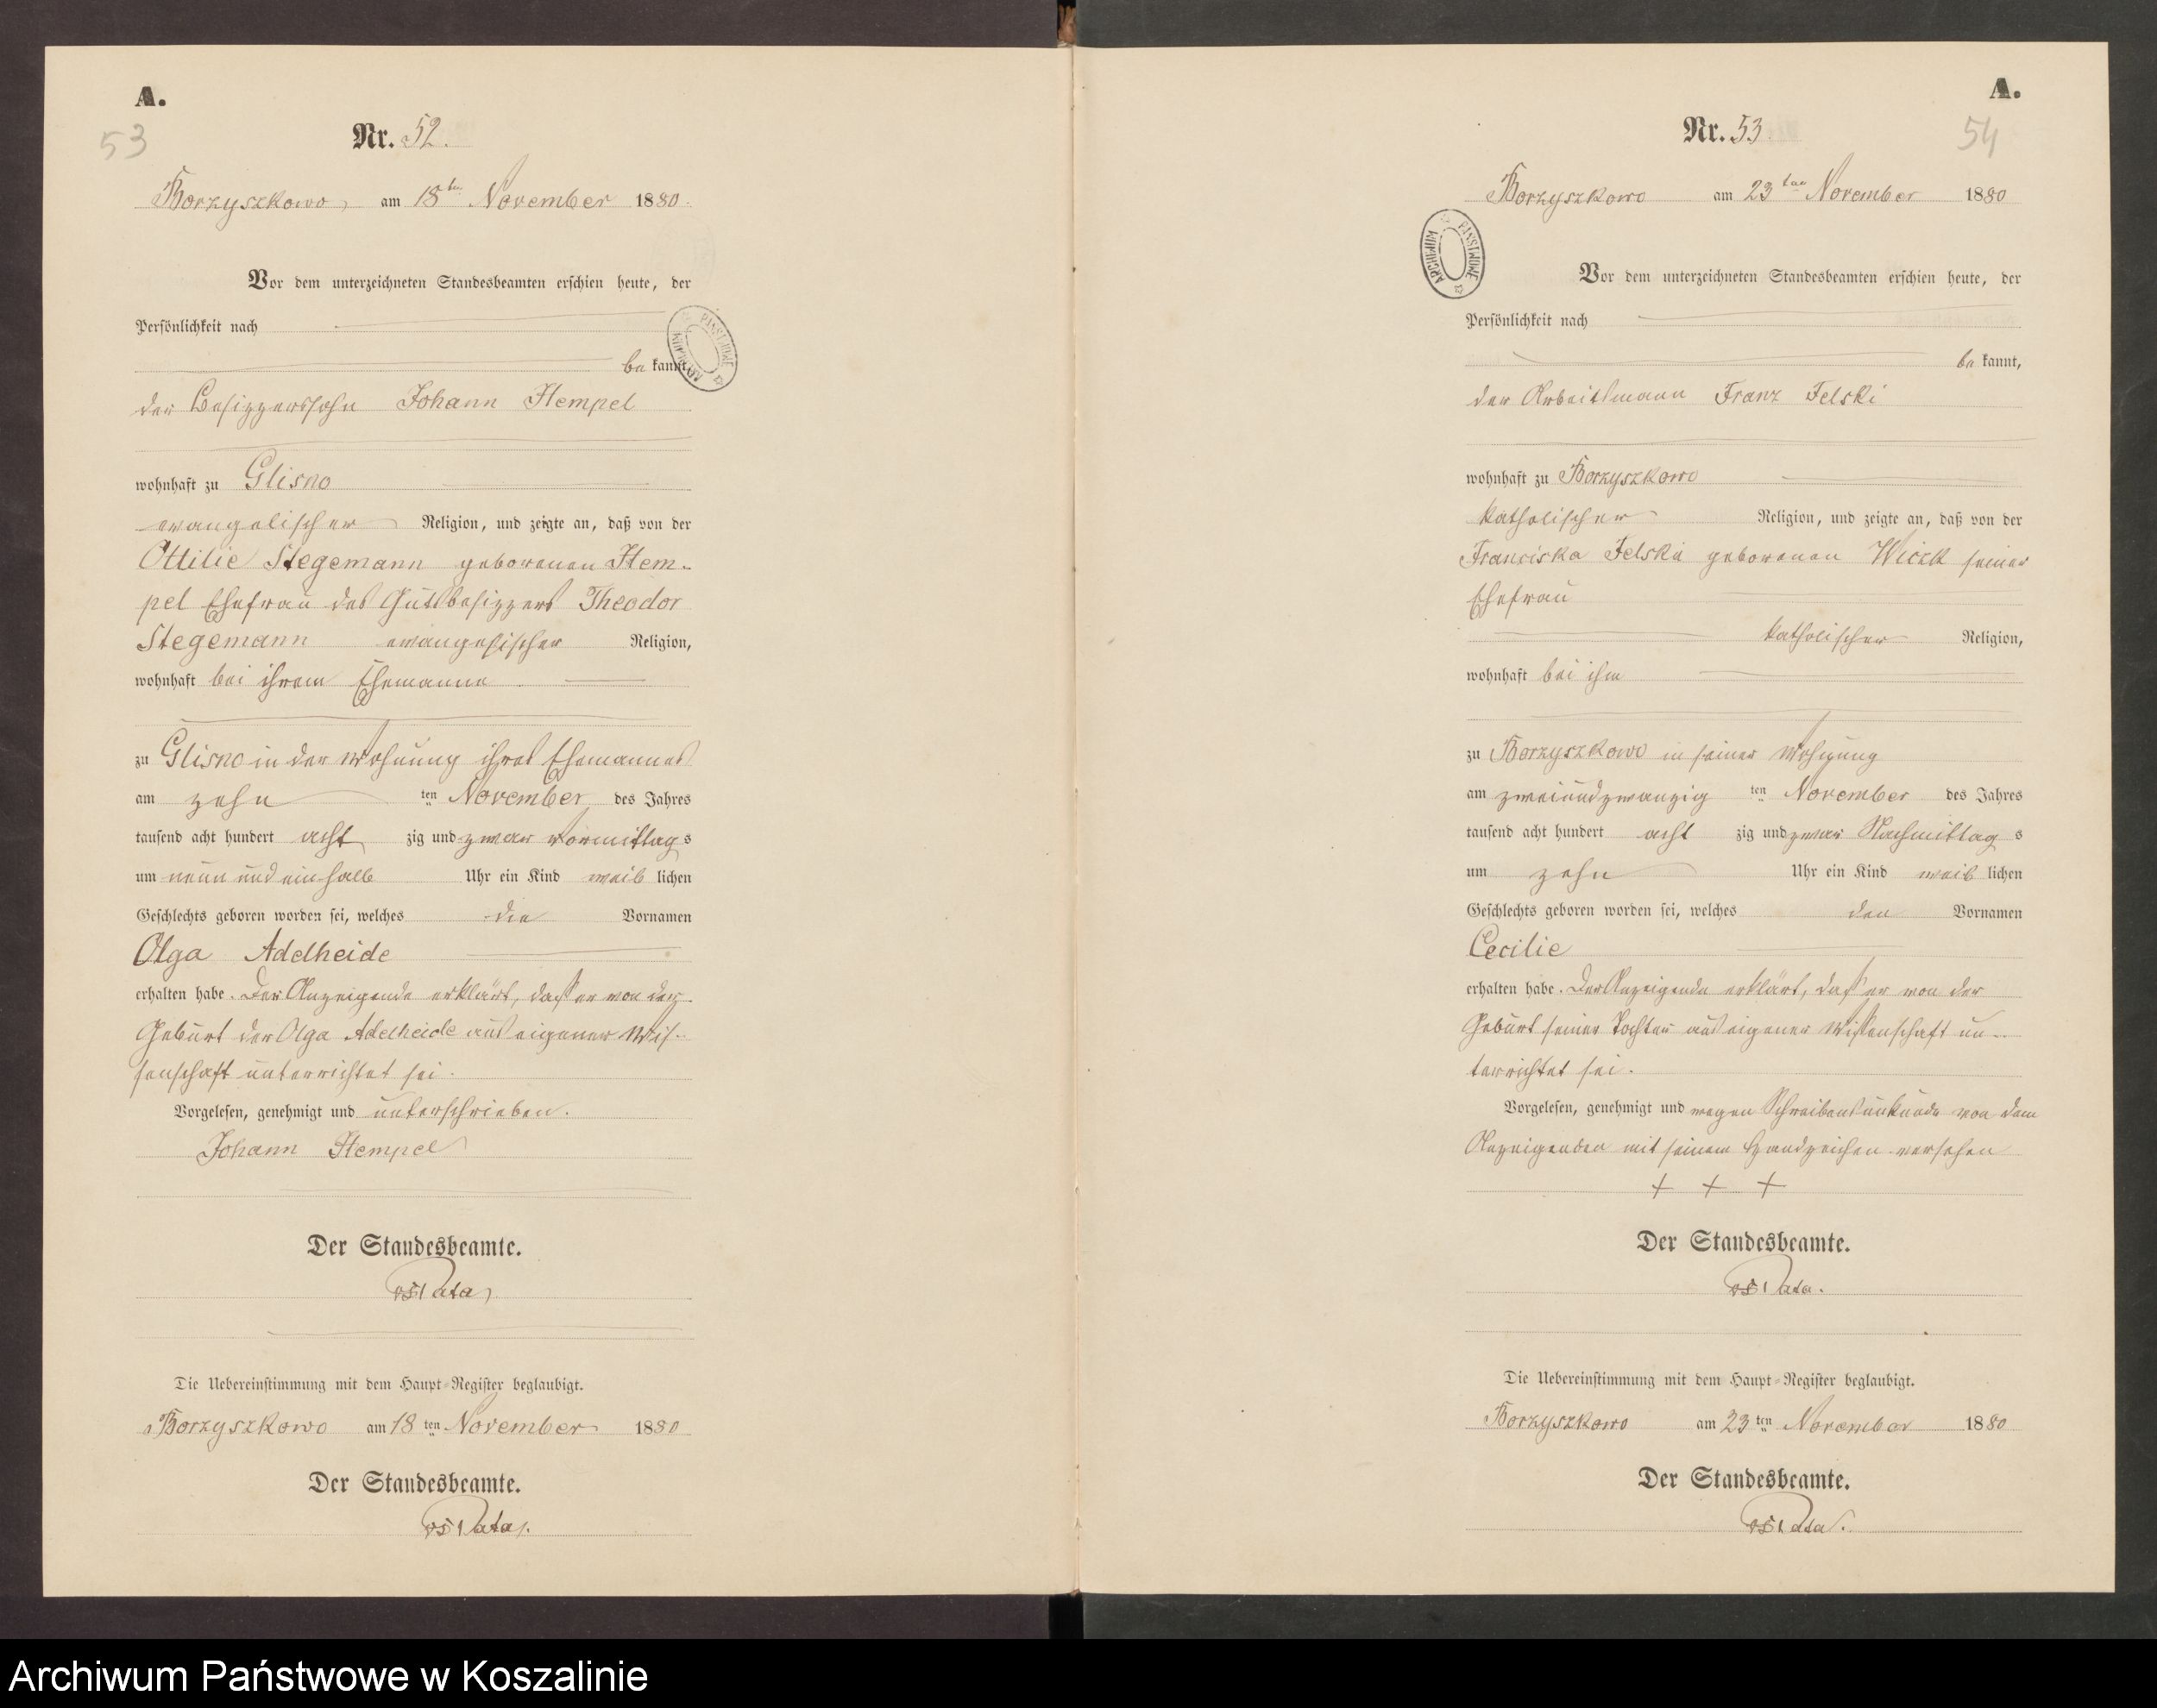 A.
53
Nr. 52.
Borzyszkowo, am 18ten November 1880.
Vor dem unterzeichneten Standesbeamten erschien heute, der
Persönlichkeit nach
bekannt,
der Besizzerssohn Johann Hempel
wohnhaft zu Glisno
evangelischer Religion, und zeigte an, daß von der
Ottilie Stegemann geborenen Hem-
pel Ehefrau des Gutsbesizzers Theodor
Stegemann evangelischer Religion,
wohnhaft bei ihrem Ehemanne
zu Glisno in der Wohnung ihres Ehemannes
am zehn ten November des Jahres
tausend acht hundert acht zig und zwar Vormittag s
um neun und ein halb Uhr ein Kind weib lichen
Geschlechts geboren worden sei, welches die Vornamen
Olga Adelheide
erhalten habe. Der Anzeigende erklärt, dass er von der
Geburt der Olga Adelheide aus eigener Wis-
senschaft unterrichtet sei.
Vorgelesen, genehmigt und unterschrieben.
Johann Hempel
Der Standesbeamte.
Die Uebereinstimmung mit dem Haupt-Register beglaubigt.
Borzyszkowo am 18 ten November 1880
Der Standesbeamte.
A.
54
Nr. 53.
Borzyszkowo am 23ten November 1880
ARCHIWUM PAŃSTWOWE
Vor dem unterzeichneten Standesbeamten erschien heute, der
Persönlichkeit nach
bekannt,
der Arbeitsmann Franz Felski
wohnhaft zu Borzyszkowo
katholischer Religion, und zeigte an, daß von der
Franciska Felski geborenen seiner
Ehefrau
katholischer Religion,
wohnhaft bei ihm
zu Borzyszkowo in seiner Wohnung
am zweiundzwanzig ten November des Jahres
tausend acht hundert acht zig und zwar Nachmittag s
um zehn Uhr ein Kind weib lichen
Geschlechts geboren worden sei, welches den Vornamen
Cecilie
erhalten habe. Der Anzeigende erklärt, dass er von der
Geburt seiner Tochter aus eigener Wissenschaft un-
terrichtet sei.
Vorgelesen, genehmigt und wegen Schreibensunkunde von dem
Anzeigenden mit seinem Handzeichen versehen
+ + +
Der Standesbeamte.
Die Uebereinstimmung mit dem Haupt-Register beglaubigt.
Borzyszkowo am 23 ten November 1880
Der Standesbeamte.
Archiwum Państwowe w Koszalinie